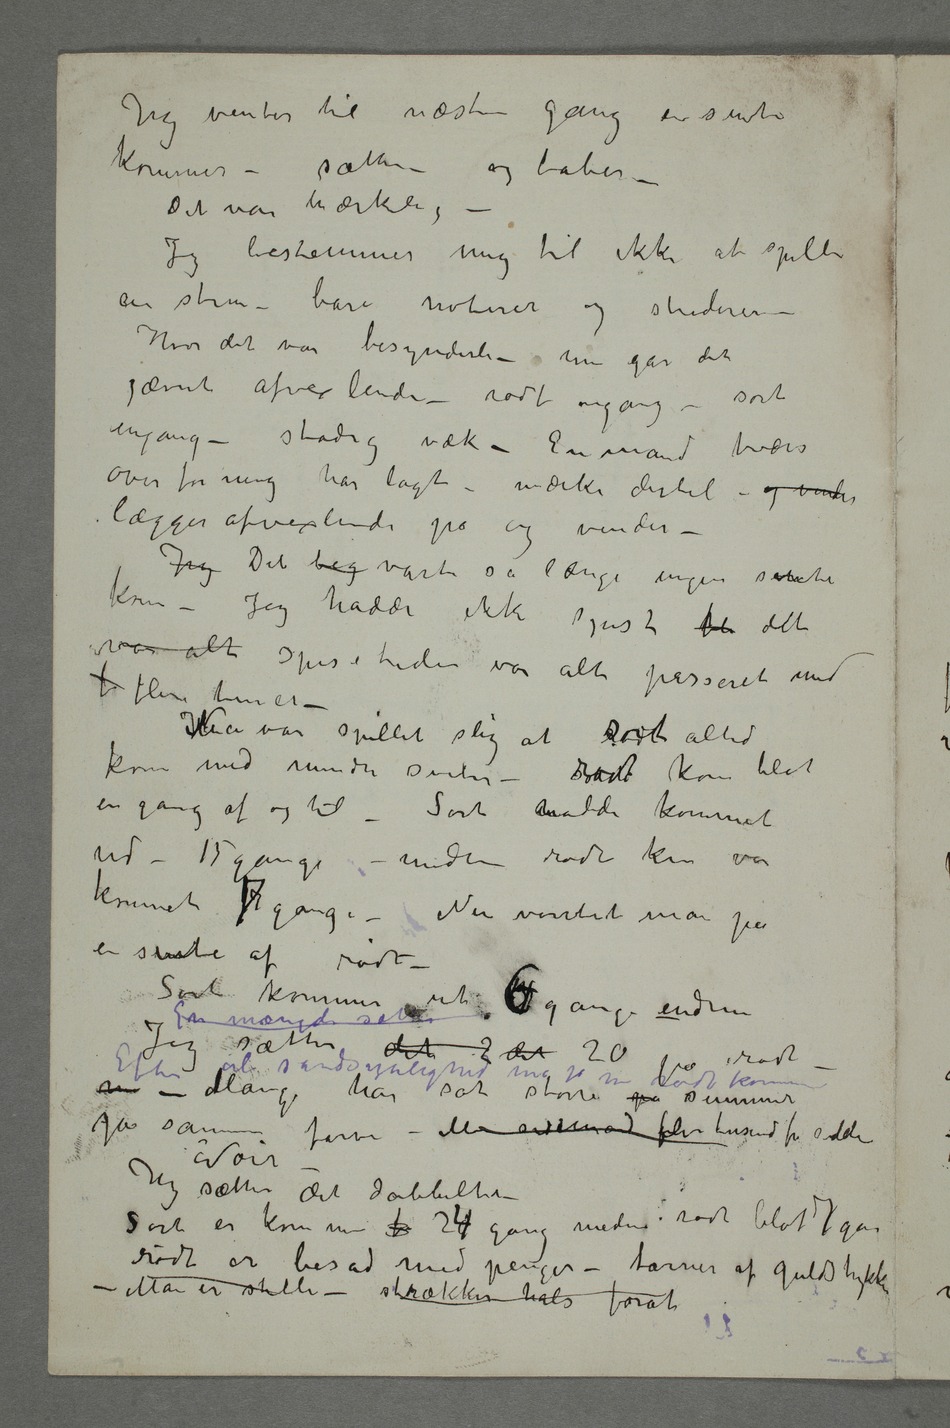 Jeg venter til næste gang en suite
kommer – sætter – og taber –
Det var mærkelig –
Jeg bestemmer mig til ikke at spille
en stun – bare noterer og studerer –
Hvor det var besynderli – nu går det
jævnt afvexlende – rødt engang – sort
engang – stadig væk – En mand tværs
over for mig har lagt – mærke dertil – og vinder
lægger afvexlende på og vinder –
Jeg Det beg varte så længe ingen suite
kom – Jeg hadde ikke spist det
var alt spisetiden var alt passeret med
t flere timer –
Nu var spillet slig at sort altid
kom med mindre suiter – rødt kom blot
en gang af og til – Sort hadde kommet
ud – 15 gange – medn rødt kun var
kommet 7 gange – Nu ventet man på
en suite af rødt –
Sort kommer ut 6 gange endnu
En mængde sætter
Jeg sætter det 2 det 20 på rødt –
Efter al sandsynlighed må jo nu Rødt komme
m – Mange har sat større på summer
på samme farve – flere tusend fr
Noir –
Jeg sætter det dobbelte –
Sort er kommen 24 gang meden rødt blot 7 gan
rødt er besåd med penger – tårner af guldstykker
– Man er stille – strækker hals forat